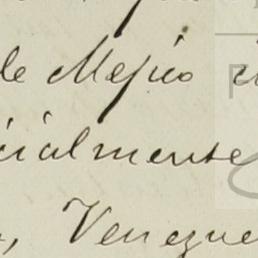 de Mejico
cialmente
, Venezue